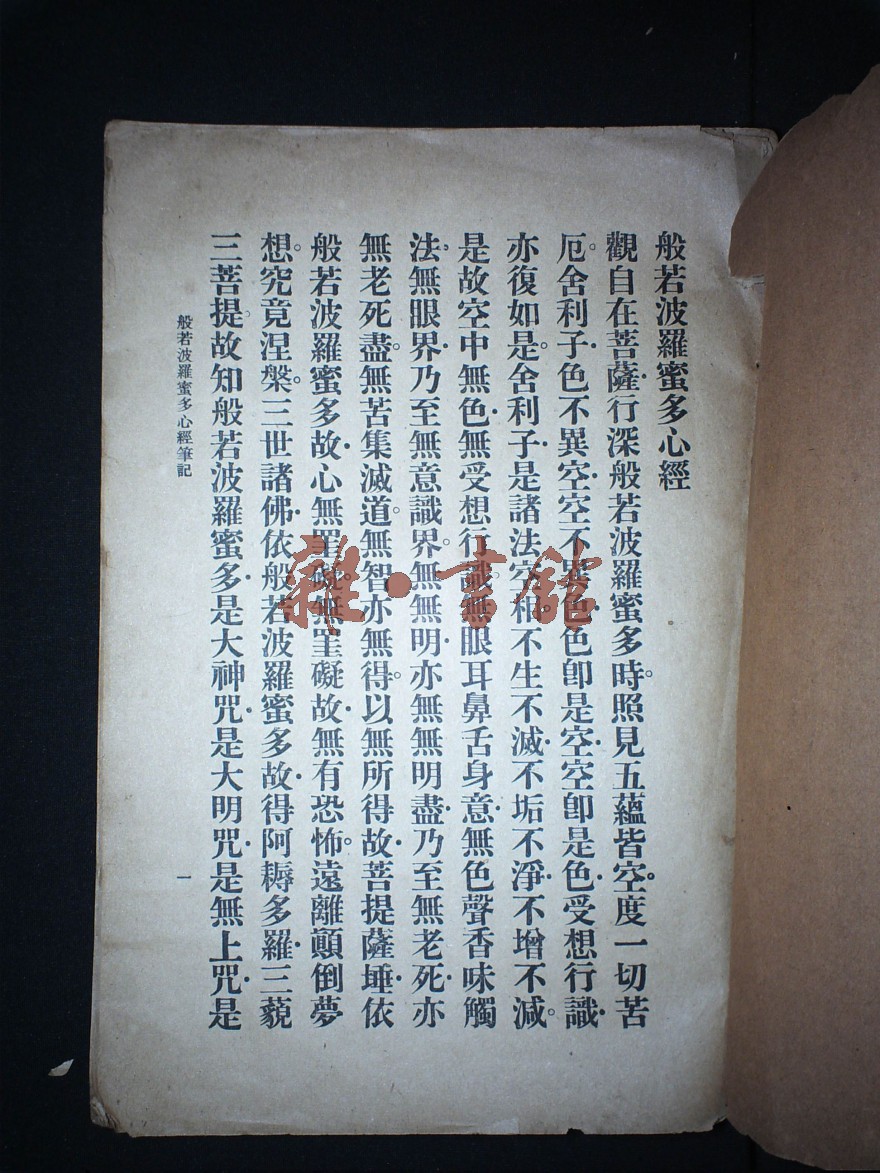 般若波羅蜜多心經
觀自在菩薩·行深般若波羅蜜多時。照見五蘊皆空。度一切苦
厄。舍利子·色不異空·空不異色·色卽是空·空卽是色·受想行識·
亦復如是。舍利子·是諸法空相·不生不滅·不垢不淨·不增不減。
是故空中無色·無受想行識。無眼耳鼻舌身意·無色聲香味觸
法·無眼界·乃至無意識界。無無明·亦無無明盡·乃至無老死·亦
無老死盡。無苦集滅道。無智亦無得。以無所得故·菩提薩埵·依
般若波羅蜜多故·心無罣礙。無罣礙故·無有恐怖。遠離顚倒夢
想。究竟涅槃。三世諸佛·依般若波羅蜜多故·得阿耨多羅·三藐
三菩提。故知般若波羅蜜多·是大神咒·是大明咒·是無上咒·是
般若波羅蜜多心經筆記
一
雜·書館